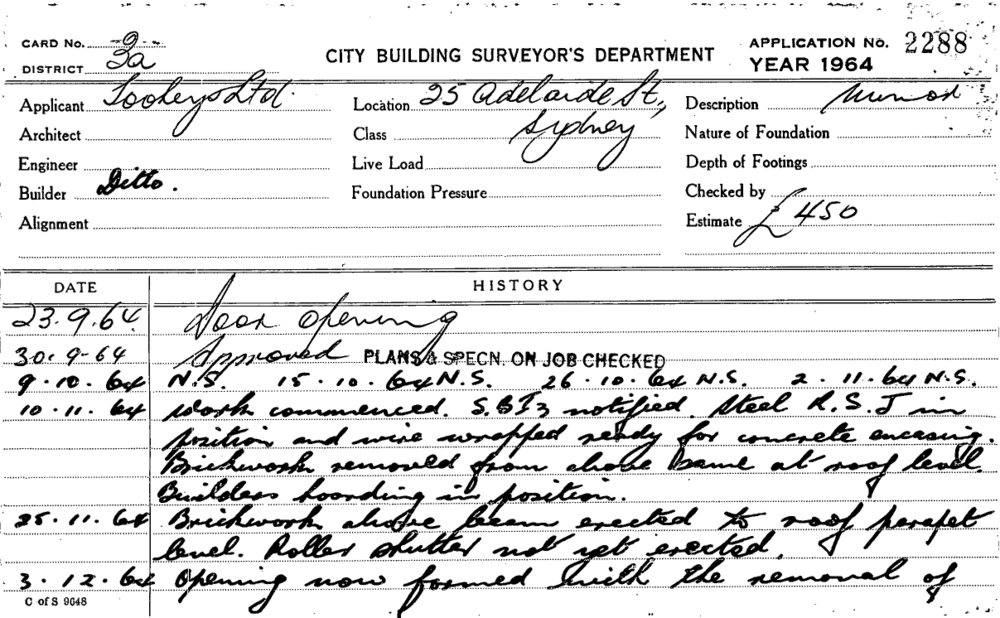 CARD No. 2
DISTRICT 3a
CITY BUILDING SURVEYOR'S DEPARTMENT
APPLICATION No. 2288
YEAR 1964
Applicant Tooheys Ltd.
Location 25 Adelaide St., Sydney
Description Minor
Architect
Class
Nature of Foundation
Engineer
Live Load
Depth of Footings
Builder Ditto.
Foundation Pressure
Checked by
Alignment
Estimate £450
DATE HISTORY
23.9.64 Door opening
30.9-64 Approved PLANS & SPECN. ON JOB CHECKED
9.10.64 N.S. 15.10.64 N.S. 26.10.64 N.S. 2.11.64 N.S.
10.11.64 Work commenced. S.B.I3 notified. Steel R.S.J in
position and wire wrapped ready for concrete encasing.
Brickwork removed from above same at roof level
Builders hoarding in position.
25.11.64 Brickwork above beam erected to roof parapet
level. Roller shutter not yet erected.
3.12.64 Opening now formed with the removal of
C of S 9648